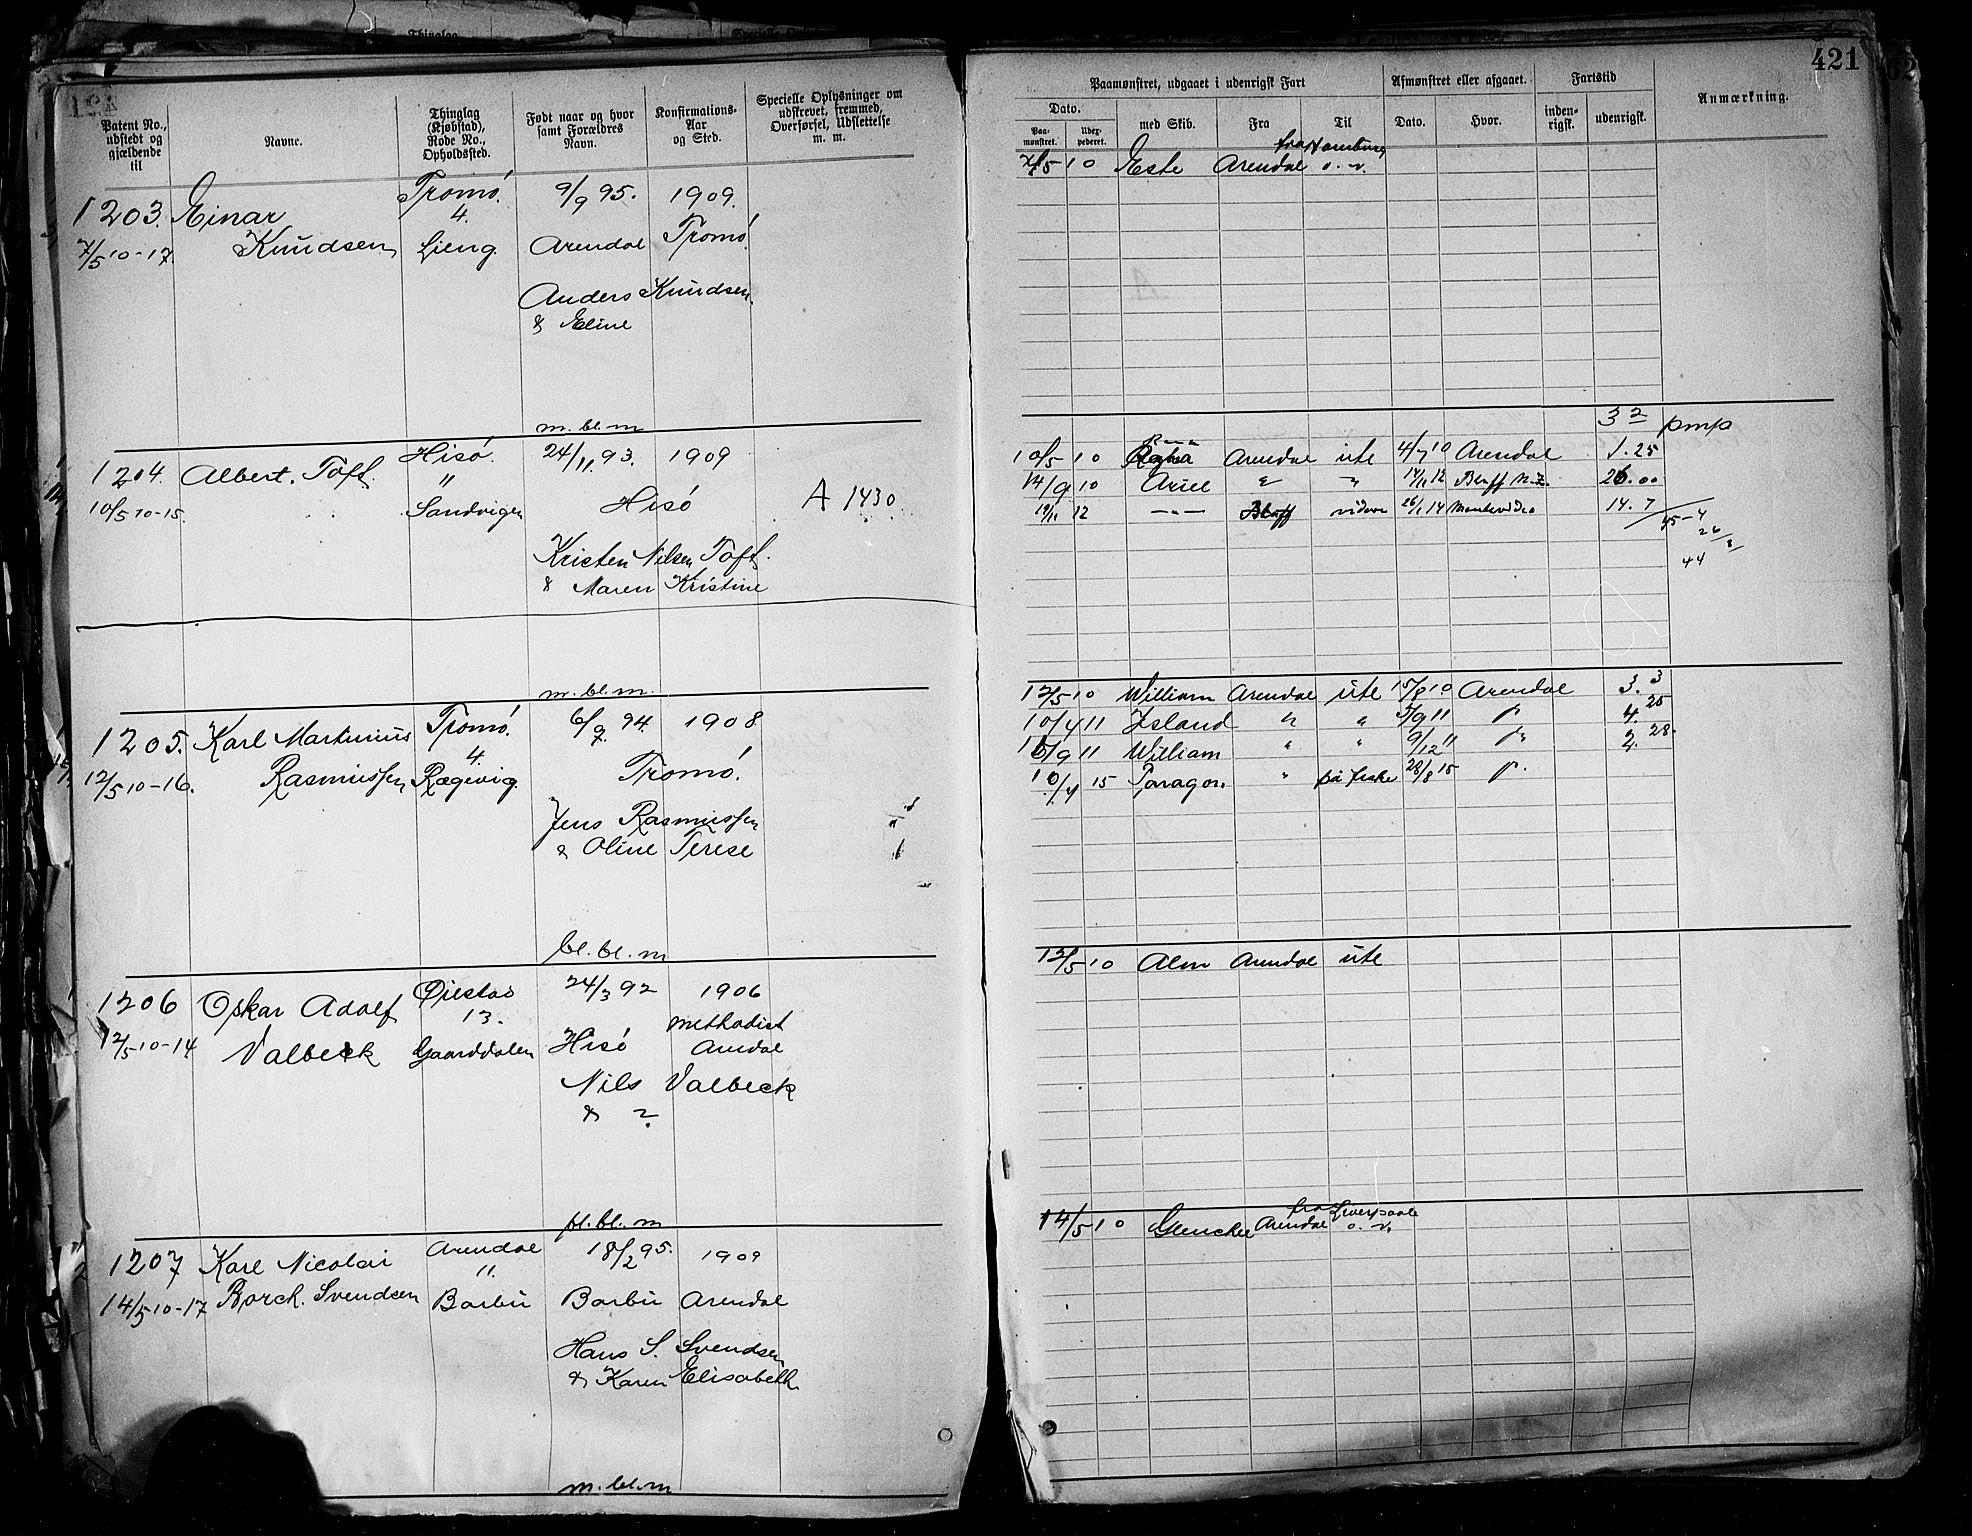 421
Patent No., udstedt og gjældende til
Navne.
Thinglag (Kjøbstad), Rode No., Opholdssted.
Født naar og hvor samt Forældres Navn.
Konfirmations-Aar og Sted.
Specielle Oplysninger om udskrevet, fremmed, Overførsel, Udslettelse m. m.
Paamønstret, udgaaet i udenrigsk Fart
Afmønstret eller afgaaet.
Fartstid
Anmærkning.
Dato.
Paa-mønstret.
Udex-pederet.
med Skib.
Fra
Til
Dato.
Hvor.
inden-rigsk.
udenrigsk.
1203. Einar Tromø. 9/9 95. 1909.
4.
7/5 10-17. Knudsen Gjeng. Arendal Tromø.
Anders Knudsen
& Eline
m. bl. m
7/5 10 Este Arendal fra Hamburg o. v.
1204. Albert. Toft. Hisø. 24/11 93. 1909
"
10/5 10-15. Sandvigen Hisø A 1430
Kristen Nilsen Toft.
& Maren Kristine
m. bl. m.
32 pmp
10/5 10 Arendal ute 4/7 10 Arendal 1. 25
14/9 10 Ariel " " 14/11 12 Bluff N.Z. 26.00
19/11 12 —"— Bluff videre 26/1 14 Montevideo 14. 7
45-4
26/8
44
1205. Karl Martinius Tromø. 6/9 94. 1908
4.
12/5 10-16. Rasmussen Rægevig. Tromø.
Jens Rasmussen
& Oline Terese
bl. bl. m
12/5 10 William Arendal ute 15/8 10 Arendal 3. 3
10/4 11 Island " " 5/9 11 " 4. 25
16/9 11 William " " 9/12 11 " 2. 28.
10/4 15 Paragon. " på fiske 28/8 15 "
1206 Oskar Adolf Øiestad 24/3 92 1906
13. methodist
12/5 10-14 Valbeck Gaarddalen Hisø Arendal
Nils Valbeck
& ?
bl. bl. m
12/5 10 Alm Arendal ute
1207 Karl Nicolai Arendal 18/2 95. 1909
11.
14/5 10-17 Borch. Svendsen Barbu Barbu Arendal
Hans S. Svendsen
& Karen Elisabeth
m. bl. m
14/5 10 Glenclee Arendal fra Liverpool o. v.